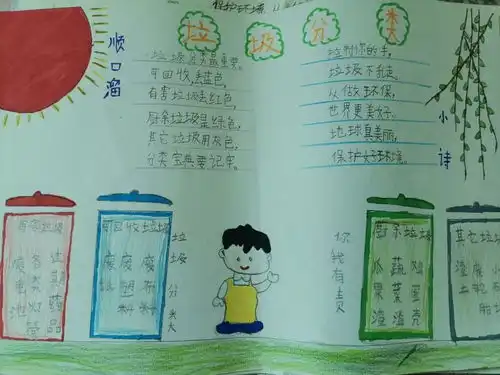 保护环境
垃圾分类
顺口溜
垃圾分类最重要。
可回收,丢蓝色,
有害垃圾丢红色,
厨余垃圾是绿色,
其它垃圾用灰色,
分类宝典要记牢。
小诗
垃圾不乱丢,
从做环保,
世界更美好。
地球真美丽,
保护好环境。
有害垃圾
废电池
各类灯管
过期药品
可回收垃圾
废
废塑料
废布料
垃圾分类
你我有责
厨余垃圾
瓜果渣
蔬菜渣
鸡蛋壳
其它垃圾
渣土